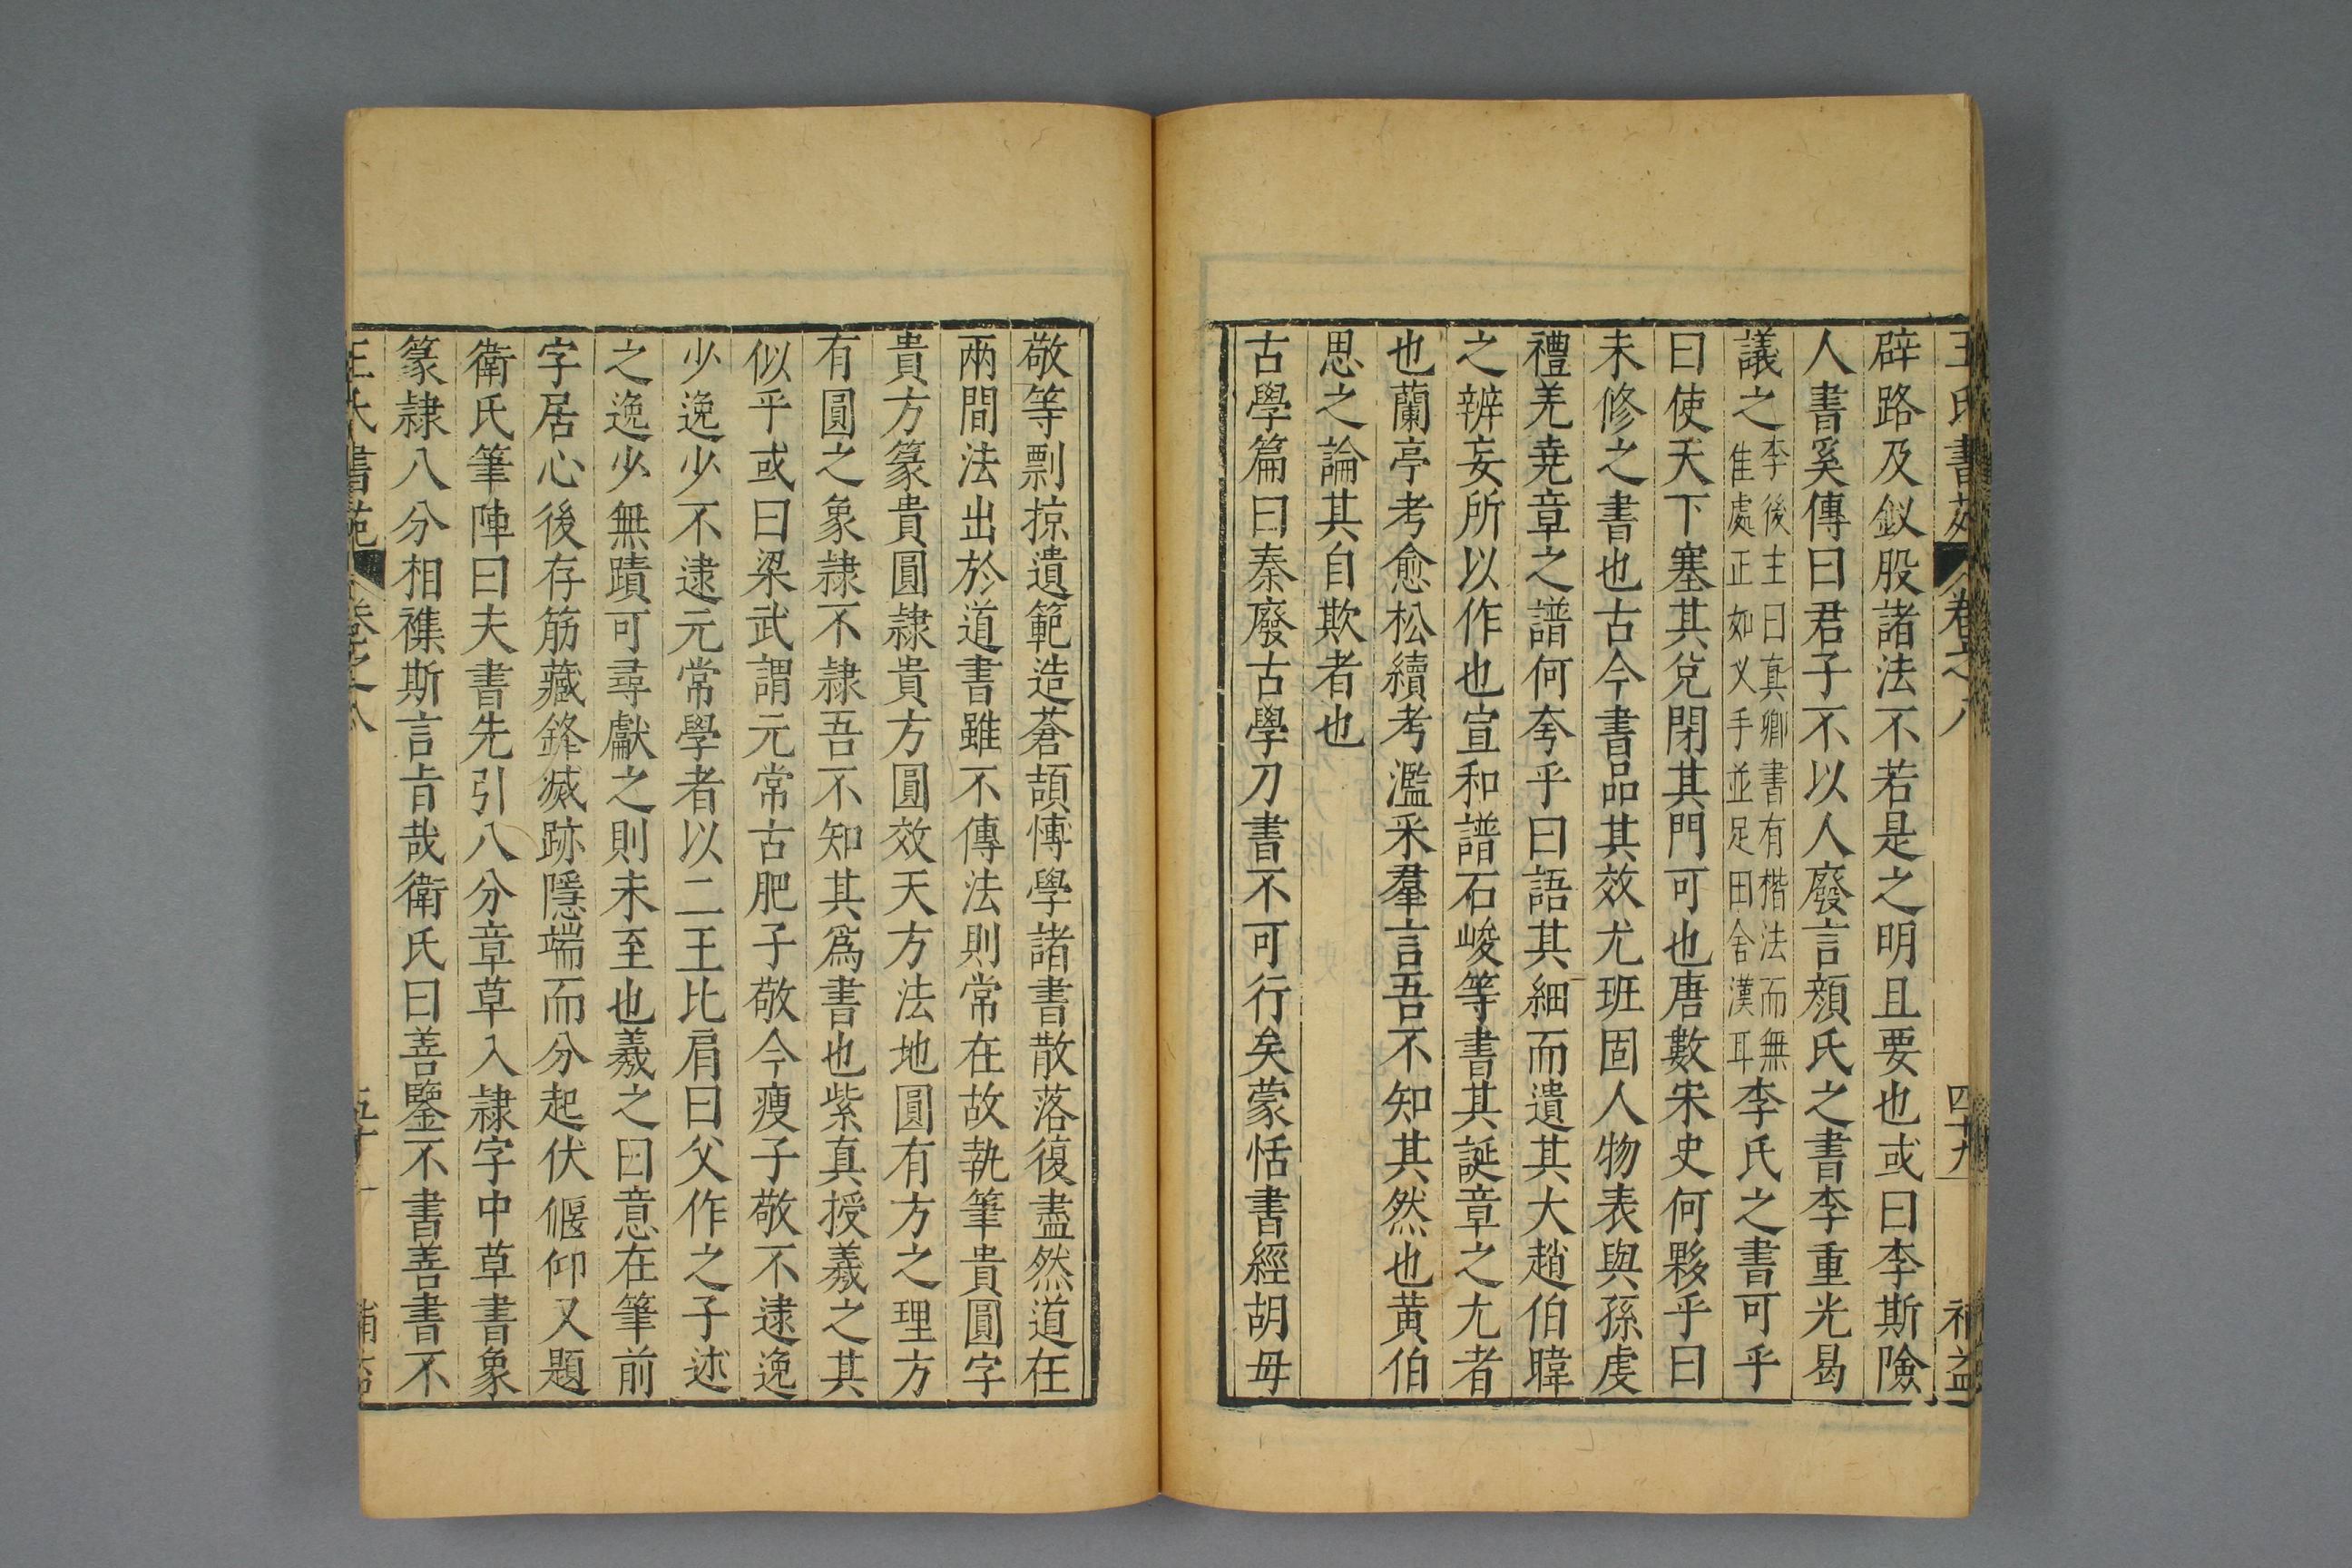 王氏書苑 卷之八 四十九 補益
辟路及釵股諸法不若是之明且要也或曰李斯險
人書奚傳曰君子不以人廢言顔氏之書李重光曷
議之李後主曰真卿書有楷法而無佳處正如义手並足田舍漢耳李氏之書可乎
曰使天下塞其兌閉其門可也唐數宋史何夥乎曰
未修之書也古今書品其效尤班固人物表與孫虔
禮羌堯章之譜何夸乎曰語其細而遺其大趙伯暐
之辨妄所以作也宣和譜石峻等書其誕章之尤者
也蘭亭考愈松續考濫采羣言吾不知其然也黄伯
思之論其自欺者也
古學篇曰秦廢古學刀書不可行矣蒙恬書經胡毋
敬等剽掠遺範造蒼頡愽學諸書散落復盡然道在
兩間法出於道書雖不傳法則常在故執筆貴圓字
貴方篆貴圓隷貴方圓效天方法地圓有方之理方
有圓之象隷不隷吾不知其爲書也紫真授羲之其
似乎或曰梁武謂元常古肥子敬今瘦子敬不逮逸
少逸少不逮元常學者以二王比肩曰父作之子述
之逸少無蹟可尋獻之則未至也羲之曰意在筆前
字居心後存筋藏鋒滅跡隱端而分起伏偃仰又題
衛氏筆陣曰夫書先引八分章草入隷字中草書象
篆隷八分相襍斯言㫖哉衛氏曰善鑒不書善書不
書苑 卷之八 五十